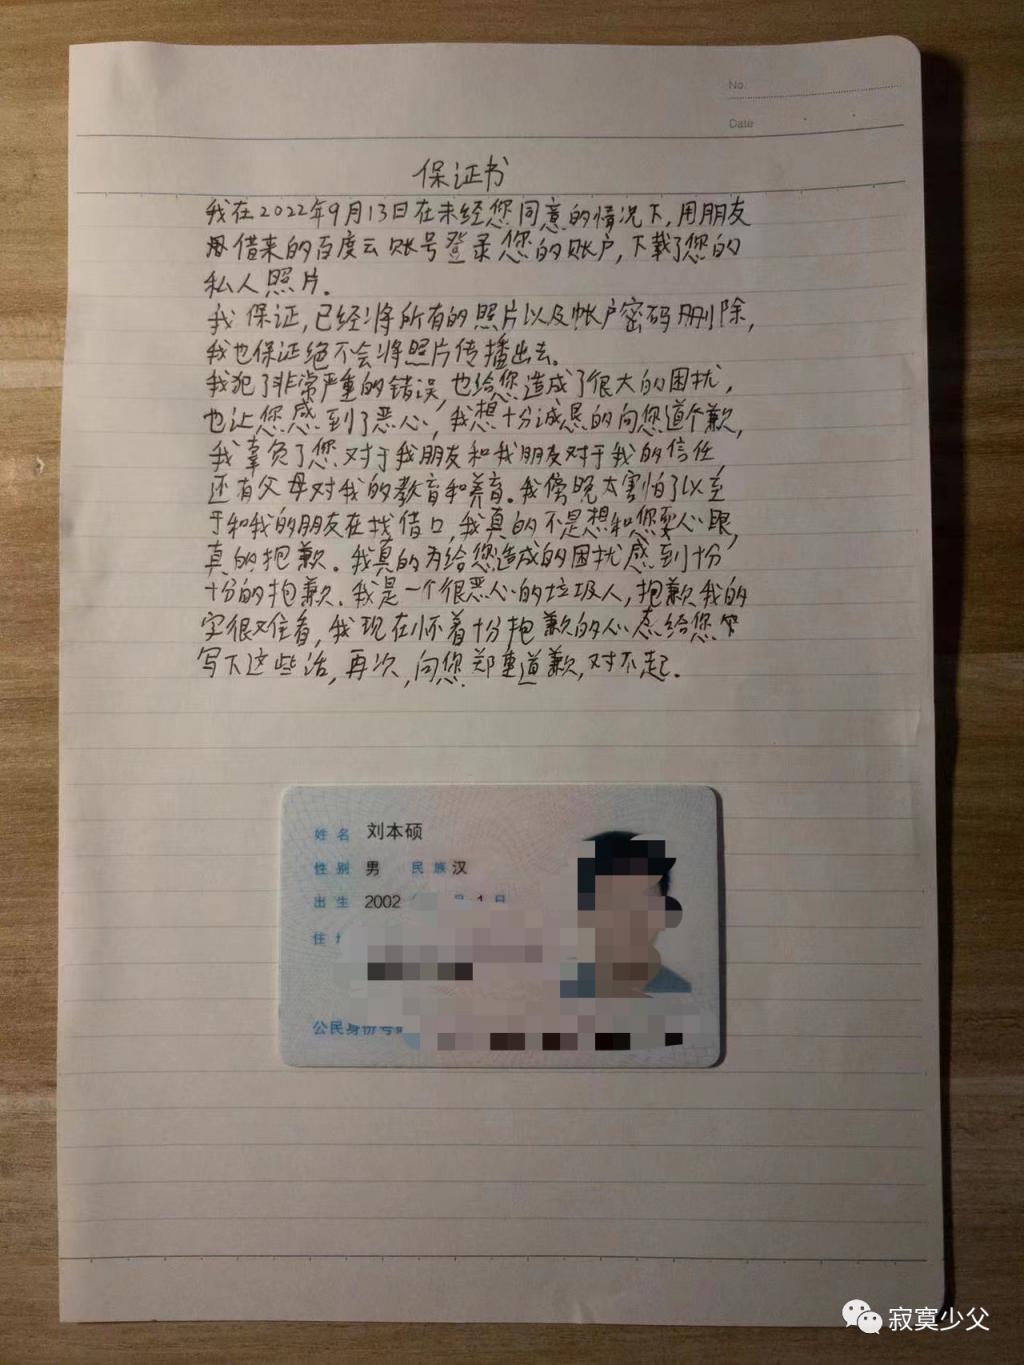 No.
Date
保证书
我在2022年9月13日在未经您同意的情况下,用朋友
借来的百度云账号登录您的账户,下载了您的
私人照片.
我保证,已经将所有的照片以及帐户密码删除,
我也保证绝不会将照片传播出去。
我犯了非常严重的错误,也给您造成了很大的困扰,
也让您感到了恶心,我想十分诚恳的向您道个歉,
我辜负了您对于我朋友和我朋友对于我的信任
还有父母对我的教育和养育。我傍晚太害怕了以至
于和我的朋友在找借口,我真的不是想和您耍心眼,
真的抱歉.我真的为给您造成的困扰感到十分
十分的抱歉.我是一个很恶心的垃圾人,抱歉我的
字很难看,我现在怀着十分抱歉的心态给您
写下这些话,再次,向您郑重道歉,对不起.
姓名 刘本硕
性别 男 民族 汉
出生 2002 1 日
住
公民身份号
寂寞少父